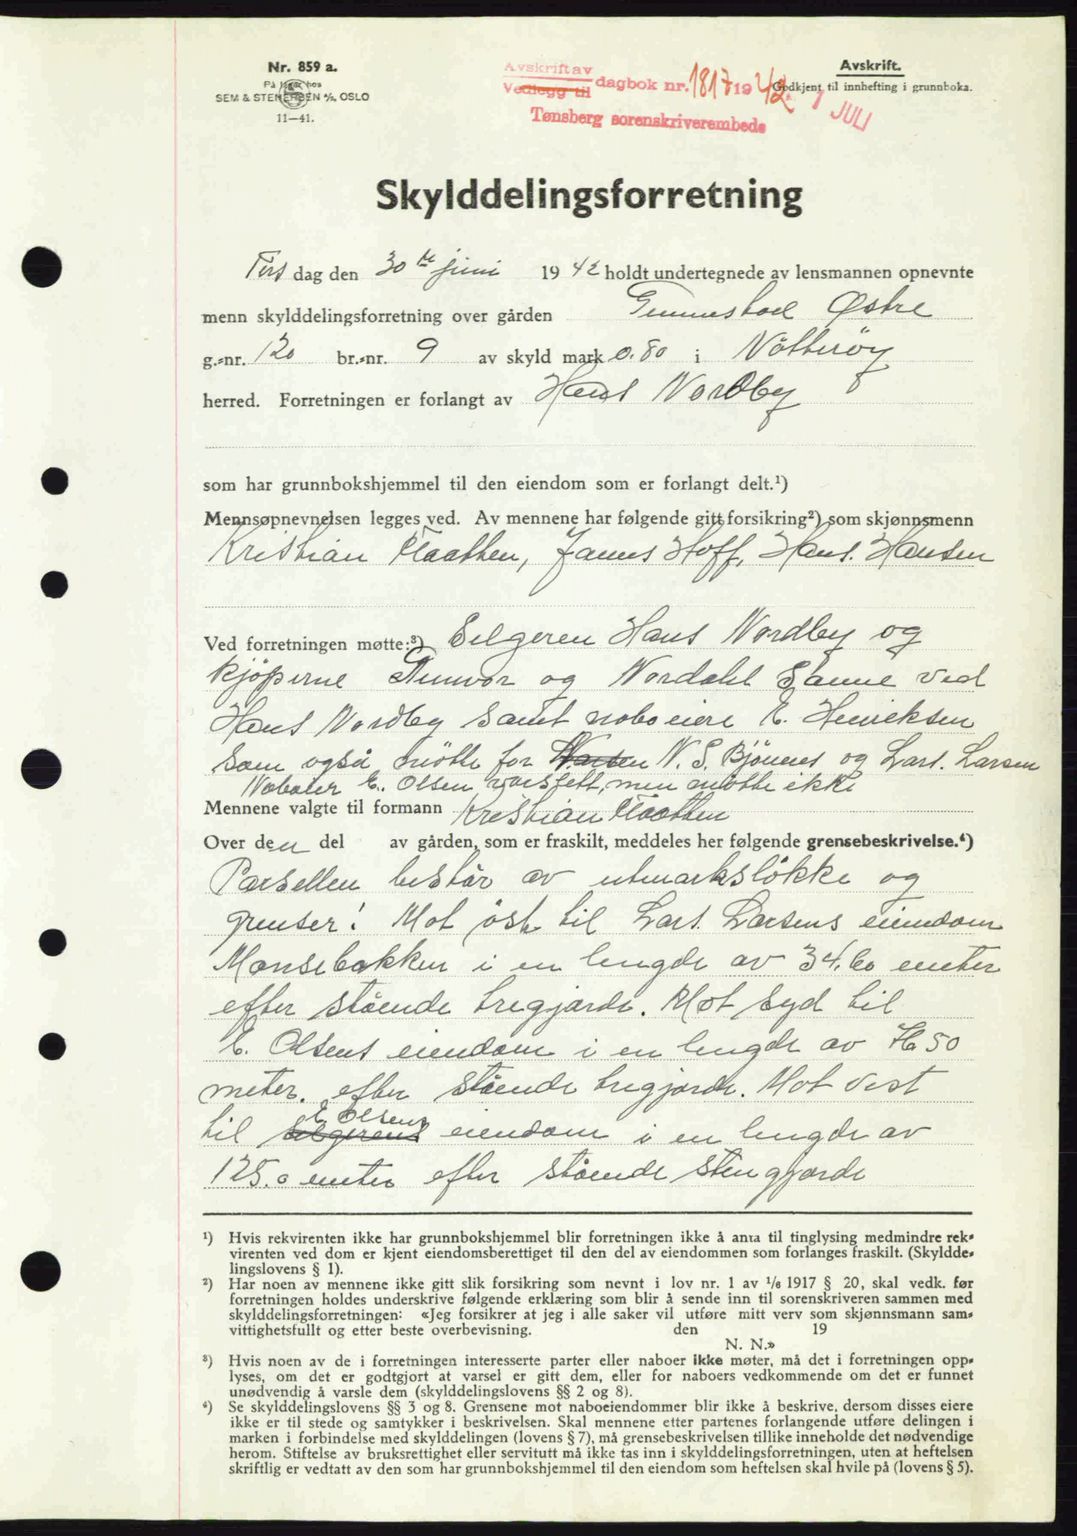 Nr. 859 a.
På lager hos
SEM & STENERSEN A/S, OSLO
11—41.
Avskrift av
Vedlegg til
dagbok nr. 1817 19 42
Tønsberg sorenskriverembede
1 JULI
Avskrift.
Godkjent til innhefting i grunnboka.
Skylddelingsforretning
Tirsdag den 30te juni 1942 holdt undertegnede av lensmannen opnevnte
menn skylddelingsforretning over gården Gunnestad Østre
g.-nr. 120 br.-nr. 9 av skyld mark 0.80 i Nøtterøy
herred. Forretningen er forlangt av Hans Nordby
som har grunnbokshjemmel til den eiendom som er forlangt delt.¹)
Mennsopnevnelsen legges ved. Av mennene har følgende gitt forsikring²) som skjønnsmenn
Kristian Flaathen, James Hoff, Hans. Hansen
Ved forretningen møtte:³) Selgeren Hans Nordby og
kjøperne Gunvor og Nordahl Sanne ved
Hans Nordby samt naboeiere E. Henriksen
som også møtte for N. S. Bjönnes og Lars. Larsen
Naboeier E. Olsen varslett, men møtte ikke
Mennene valgte til formann Kristian Flaathen
Over den del av gården, som er fraskilt, meddeles her følgende grensebeskrivelse.⁴)
Parsellen består av utmarksløkke og
grenser: Mot øst til Lars. Larsens eiendom
Månsebakken i en lengde av 34,60 meter
efter stående tregjærde. Mot syd til
E. Olsens eiendom i en lengde av 50
meter. efter stående tregjærde. Mot vest
til selgerens E. Olsens eiendom i en lengde av
125.0 meter efter stående stengjærde
¹) Hvis rekvirenten ikke har grunnbokshjemmel blir forretningen ikke å anta til tinglysing medmindre rek-
virenten ved dom er kjent eiendomsberettiget til den del av eiendommen som forlanges fraskilt. (Skyldde-
lingslovens § 1).
²) Har noen av mennene ikke gitt slik forsikring som nevnt i lov nr. 1 av 1/6 1917 § 20, skal vedk. før
forretningen holdes underskrive følgende erklæring som blir å sende inn til sorenskriveren sammen med
skylddelingsforretningen: «Jeg forsikrer at jeg i alle saker vil utføre mitt verv som skjønnsmann sam-
vittighetsfullt og etter beste overbevisning. den 19
N. N.»
³) Hvis noen av de i forretningen interesserte parter eller naboer ikke møter, må det i forretningen opp-
lyses, om det er godtgjort at varsel er gitt dem, eller for naboers vedkommende om det er funnet
unødvendig å varsle dem (skylddelingslovens §§ 2 og 8).
⁴) Se skylddelingslovens §§ 3 og 8. Grensene mot naboeiendommer blir ikke å beskrive, dersom disses eiere
ikke er til stede og samtykker i beskrivelsen. Skal mennene etter partenes forlangende utføre delingen i
marken i forbindelse med skylddelingen (lovens § 7), må grensebeskrivelsen tillike inneholde det nødvendige
herom. Stiftelse av bruksrettighet eller servitutt må ikke tas inn i skylddelingsforretningen, uten at heftelsen
skriftlig er vedtatt av den som har grunnbokshjemmel til den eiendom som heftelsen skal hvile på (lovens § 5).